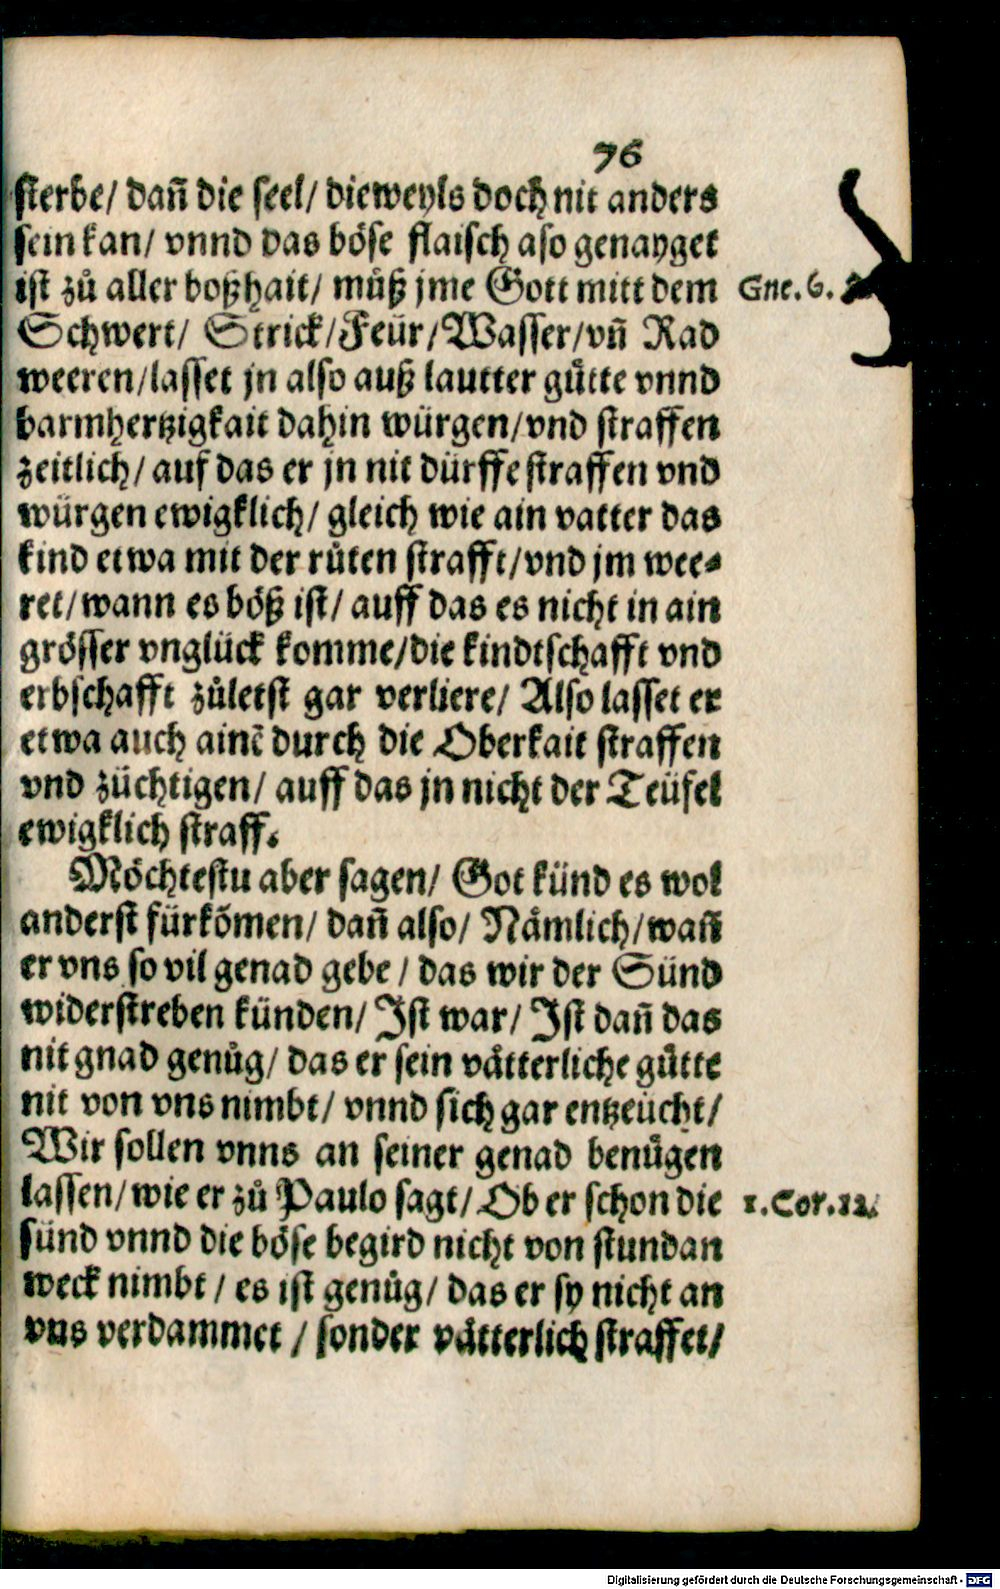 76
sterbe/ dañ die seel/ dieweyls doch nit anders
sein kan/ vnnd das böse flaisch aso genayget
ist zů aller boßhait/ můß jme Gott mitt dem
Gne. 6.
Schwert/ Strick/Feür/Wasser/vñ Rad
weeren/lasset jn also auß lautter gůtte vnnd
barmhertzigkait dahin würgen/vnd straffen
zeitlich/ auf das er jn nit dürffe straffen vnd
würgen ewigklich/ gleich wie ain vatter das
kind etwa mit der růten strafft/vnd jm wee⸗
ret/wann es böß ist/ auff das es nicht in ain
grösser vnglück komme/die kindtschafft vnd
erbschafft zůletst gar verliere/ Also lasset er
etwa auch ainē durch die Oberkait straffen
vnd züchtigen/ auff das jn nicht der Teüfel
ewigklich straff.
Möchtestu aber sagen/ Got künd es wol
anderst fürkõmen/ dañ also/ Nämlich/wañ
er vns so vil genad gebe/ das wir der Sünd
widerstreben künden/ Ist war/ Ist dañ das
nit gnad genůg/ das er sein vätterliche gůtte
nit von vns nimbt/ vnnd sich gar entzeücht/
Wir sollen vnns an seiner genad benůgen
lassen/wie er zů Paulo sagt/ Ob er schon die
1. Cor. 12.
sünd vnnd die böse begird nicht von stundan
weck nimbt/ es ist genůg/ das er sy nicht an
vns verdammet/ sonder vätterlich straffet/
Digitalisierung gefördert durch die Deutsche Forschungsgemeinschaft - DFG